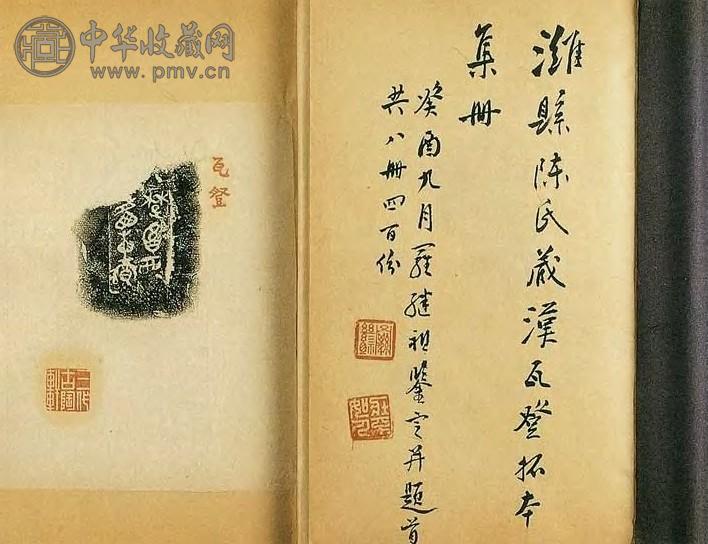 中华收藏网
www.pmv.cn
濰縣陳氏藏漢瓦登拓本
集册
癸酉九月羅繼祖鑒定并題首
共八册四百份
瓦登
三代
古陶
軒